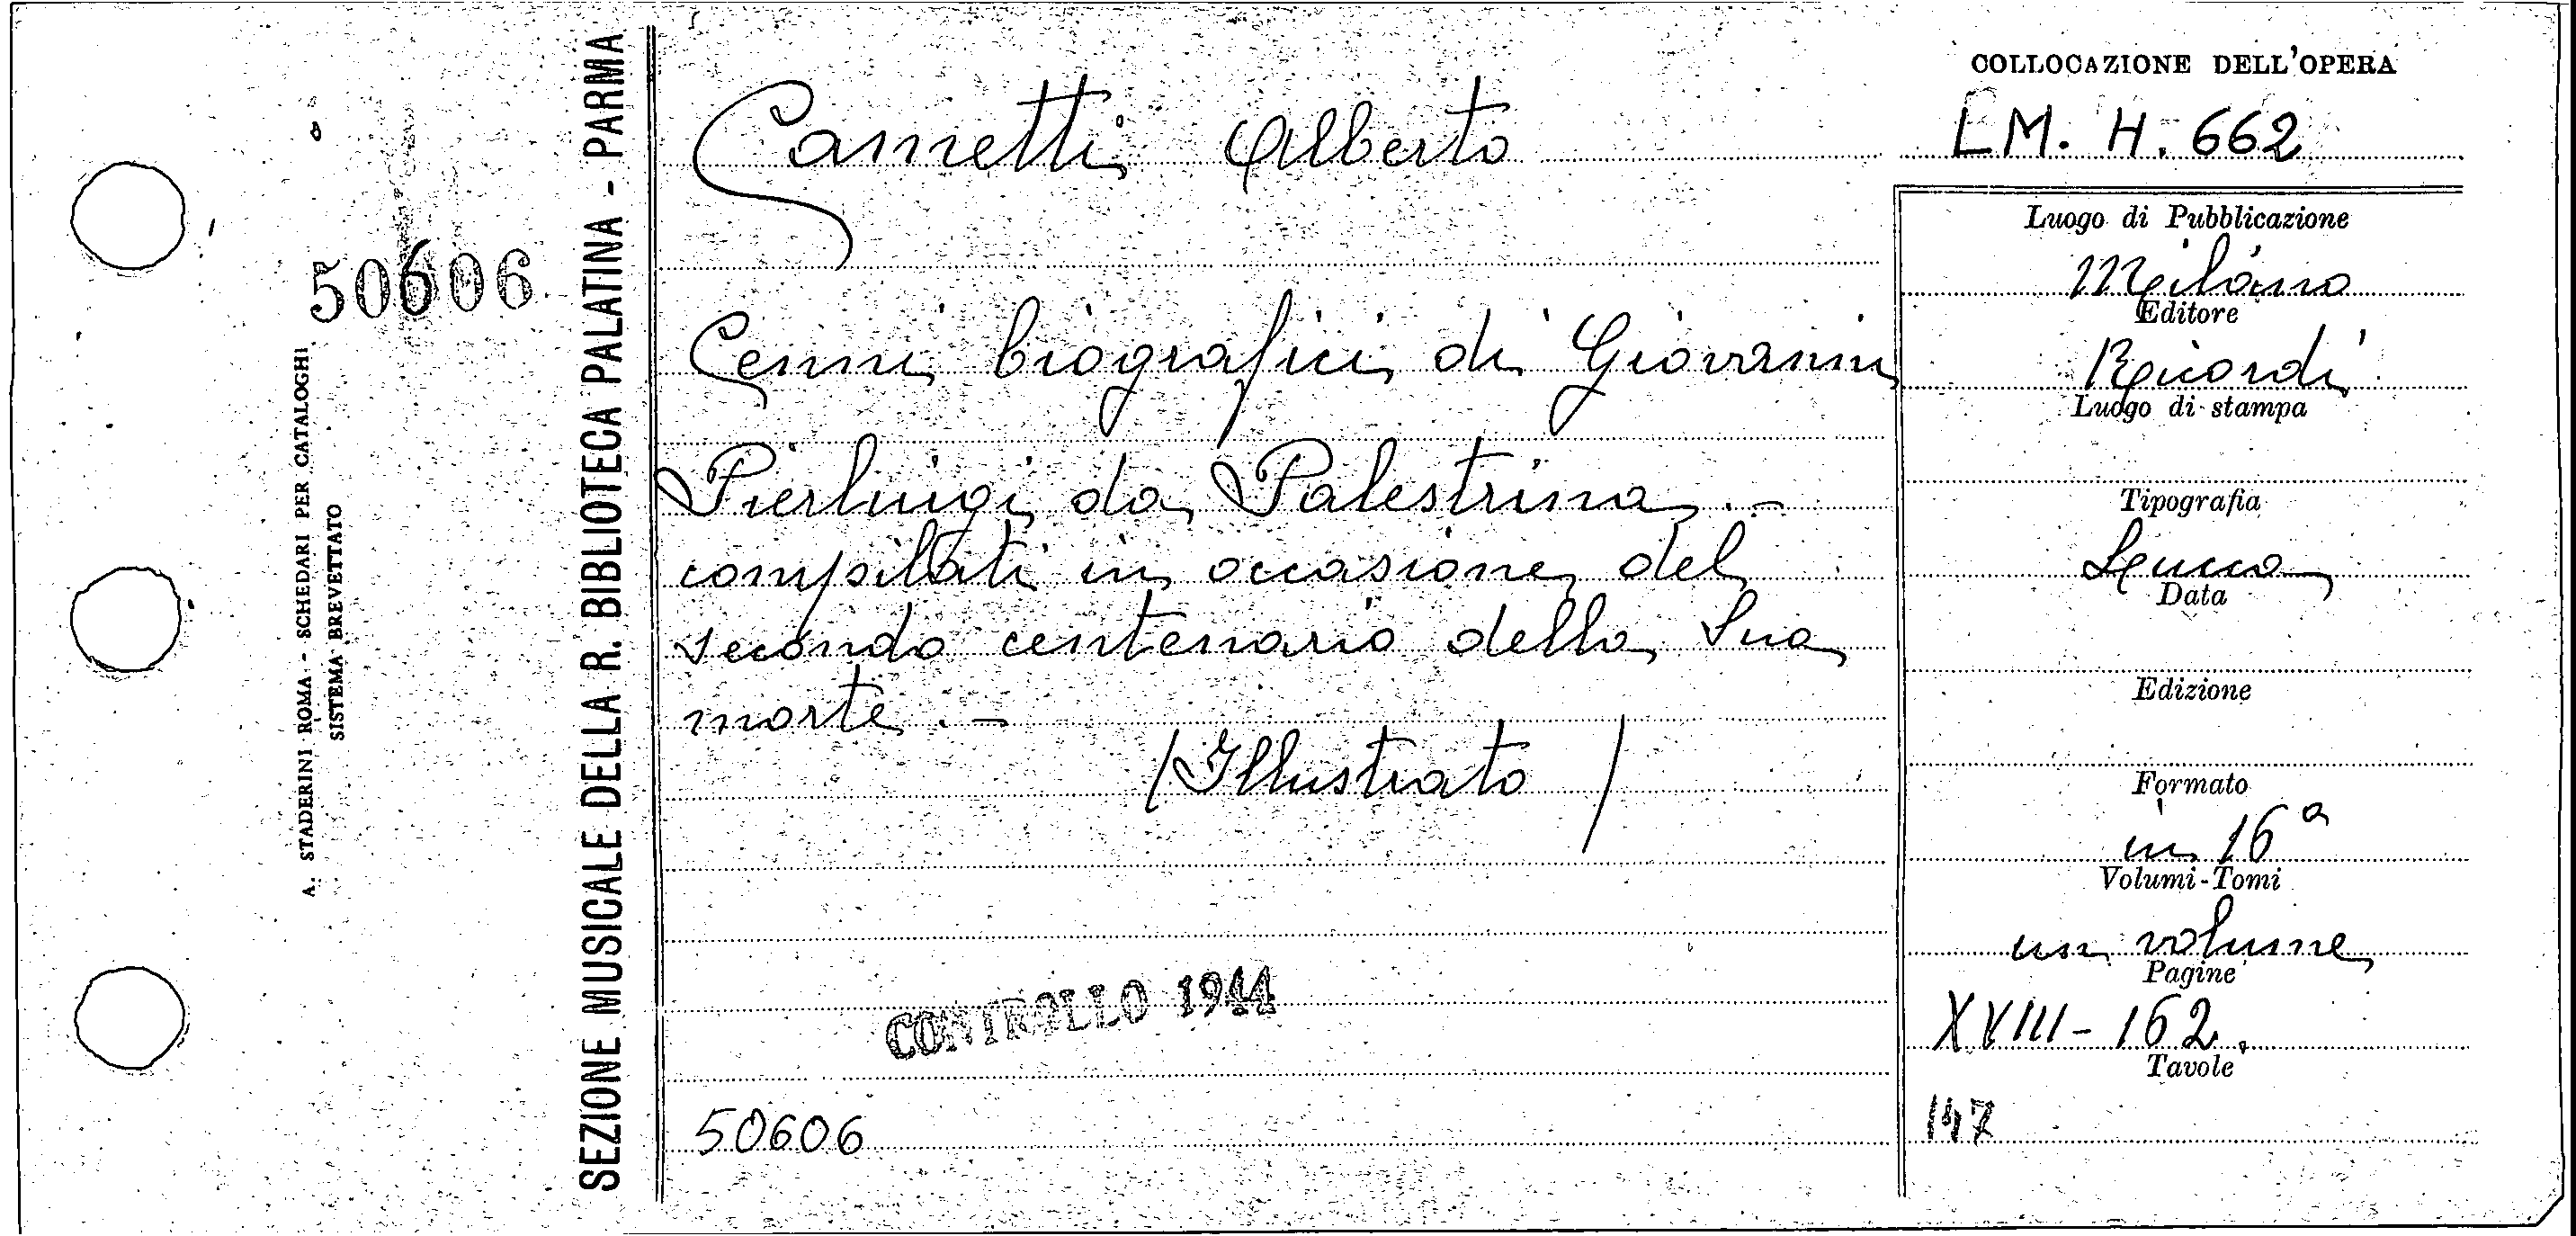 50606
A. STADERINI ROMA - SCHEDARI PER CATALOGHI
SISTEMA BREVETTATO
SEZIONE MUSICALE DELLA R. BIBLIOTECA PALATINA - PARMA
Cametti Alberto
Cenni biografici di Giovanni
Pierluigi da Palestrina .-
compilati in occasione del
secondo centenario della Sua
morte .-
/Illustrato/
CONTROLLO 1944
50606
COLLOCAZIONE DELL'OPERA
LM. H. 662
Luogo di Pubblicazione
Milano
Editore
Ricordi
Luogo di stampa
Tipografia
Data
Edizione
Formato
in 16º
Volumi-Tomi
un volume
Pagine
XVIII-162.
Tavole